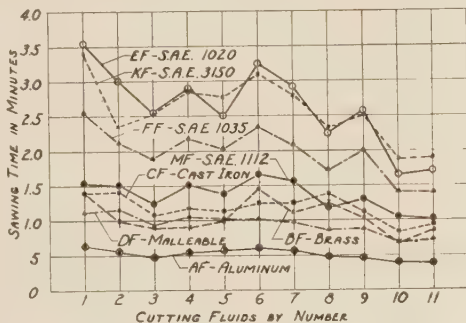 4.0
3.5
3.0
2.5
2.0
1.5
1.0
.5
0
SAWING TIME IN MINUTES
EF-S.A.E. 1020
KF-S.A.E. 3150
FF-S.A.E. 1035
MF-S.A.E. 1112
CF-CAST IRON
DF-MALLEABLE
BF-BRASS
AF-ALUMINUM
1 2 3 4 5 6 7 8 9 10 11
CUTTING FLUIDS BY NUMBER